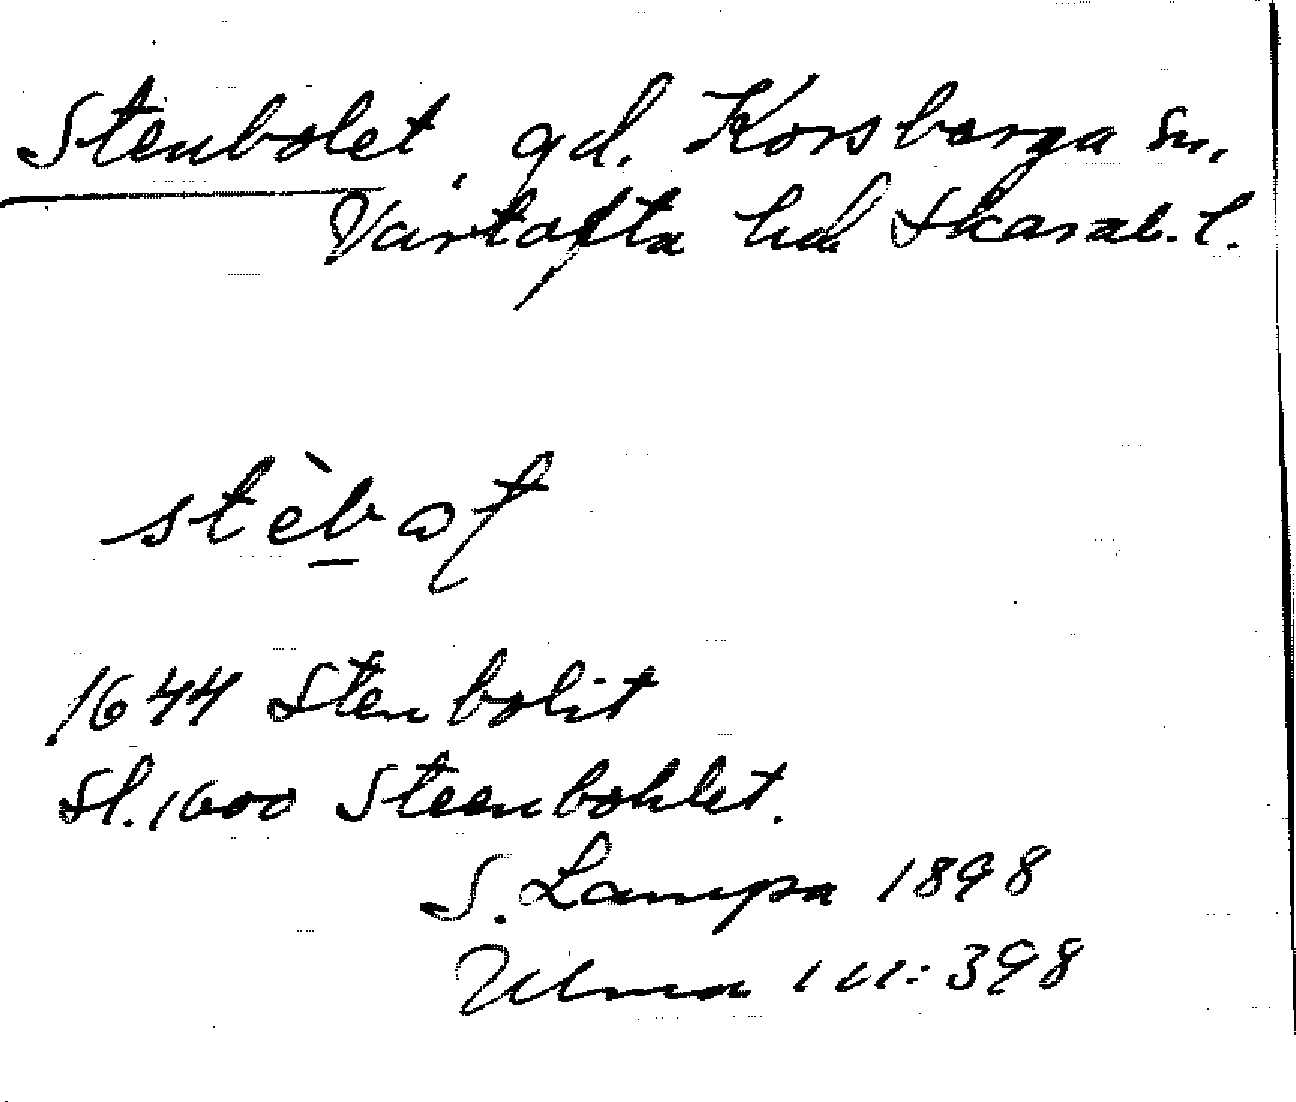 Stenbolet, gd. Korsberga sn,
Vartofta hd Skarab. l.
stèbøt
1644 Stenbolit
Sl. 1600 Steenbohlet.
S. Lampa 1898
Ulma 111:398